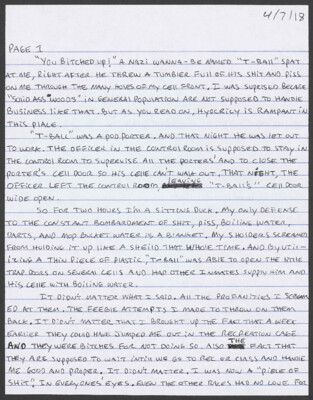 4/7/18
PAGE 1
"YOU BITCHED UP!" A NAZI WANNA-BE NAMED "T-BALL" SPAT
AT ME, RIGHT AFTER HE THREW A TUMBLER FULL OF HIS SHIT AND PISS
ON ME THROUGH THE MANY HOLES OF MY CELL FRONT. I WAS SUPRISED BECAUSE
"SOLID ASS WOODS" IN GENERAL POPULATION ARE NOT SUPPOSED TO HANDLE
BUSINESS LIKE THAT. BUT AS YOU READ ON, HYOCRICY IS RAMPANT IN
THIS PLACE.
"T-BALL" WAS A POD PORTER, AND THAT NIGHT HE WAS LET OUT
TO WORK. THE OFFICER IN THE CONTROL ROOM IS SUPPOSED TO STAY IN
THE CONTROL ROOM TO SUPERVISE ALL THE PORTERS' AND TO CLOSE THE
PORTER'S CELL DOOR SO HIS CELLIE CAN'T WALK OUT. THAT NIGHT, THE
OFFICER LEFT THE CONTROL ROOM LEAVING "T-BALL'S" CELL DOOR
WIDE OPEN.
SO FOR TWO HOURS I'M A SITTING DUCK. MY ONLY DEFENSE
TO THE CONSTANT BOMBARDMENT OF SHIT, PISS, BOILING WATER,
DARTS, AND MOP BUCKET WATER IS A BLANKET. MY SHOLDERS SCREAMED
FROM HOLDING IT UP LIKE A SHEILD THAT WHOLE TIME. AND BY UTIL-
IZING A THIN PIECE OF PLASTIC, "T-BALL" WAS ABLE TO OPEN THE LITTLE
TRAP DOORS ON SEVERAL CELLS AND HAD OTHER INMATES SUPPLY HIM AND
HIS CELLIE WITH BOILING WATER.
IT DIDN'T MATTER WHAT I SAID. ALL THE PROFANITIES I SCREAM-
ED AT THEM. THE FEEBLE ATTEMPTS I MADE TO THROW ON THEM
BACK. IT DIDN'T MATTER THAT I BROUGHT UP THE FACT THAT A WEEK
EARLIER THEY COULD HAVE JUMPED ME OUT IN THE RECREATION CAGE
AND THEY WERE BITCHES FOR NOT DOING SO. ALSO THE FACT THAT
THEY ARE SUPPOSED TO WAIT UNTIL WE GO TO REC OR CLASS AND HANDLE
ME GOOD AND PROPER. IT DIDN'T MATTER, I WAS NOW A "PIECE OF
SHIT", IN EVERYONES EYES. EVEN THE OTHER RACES HAD NO LOVE FOR